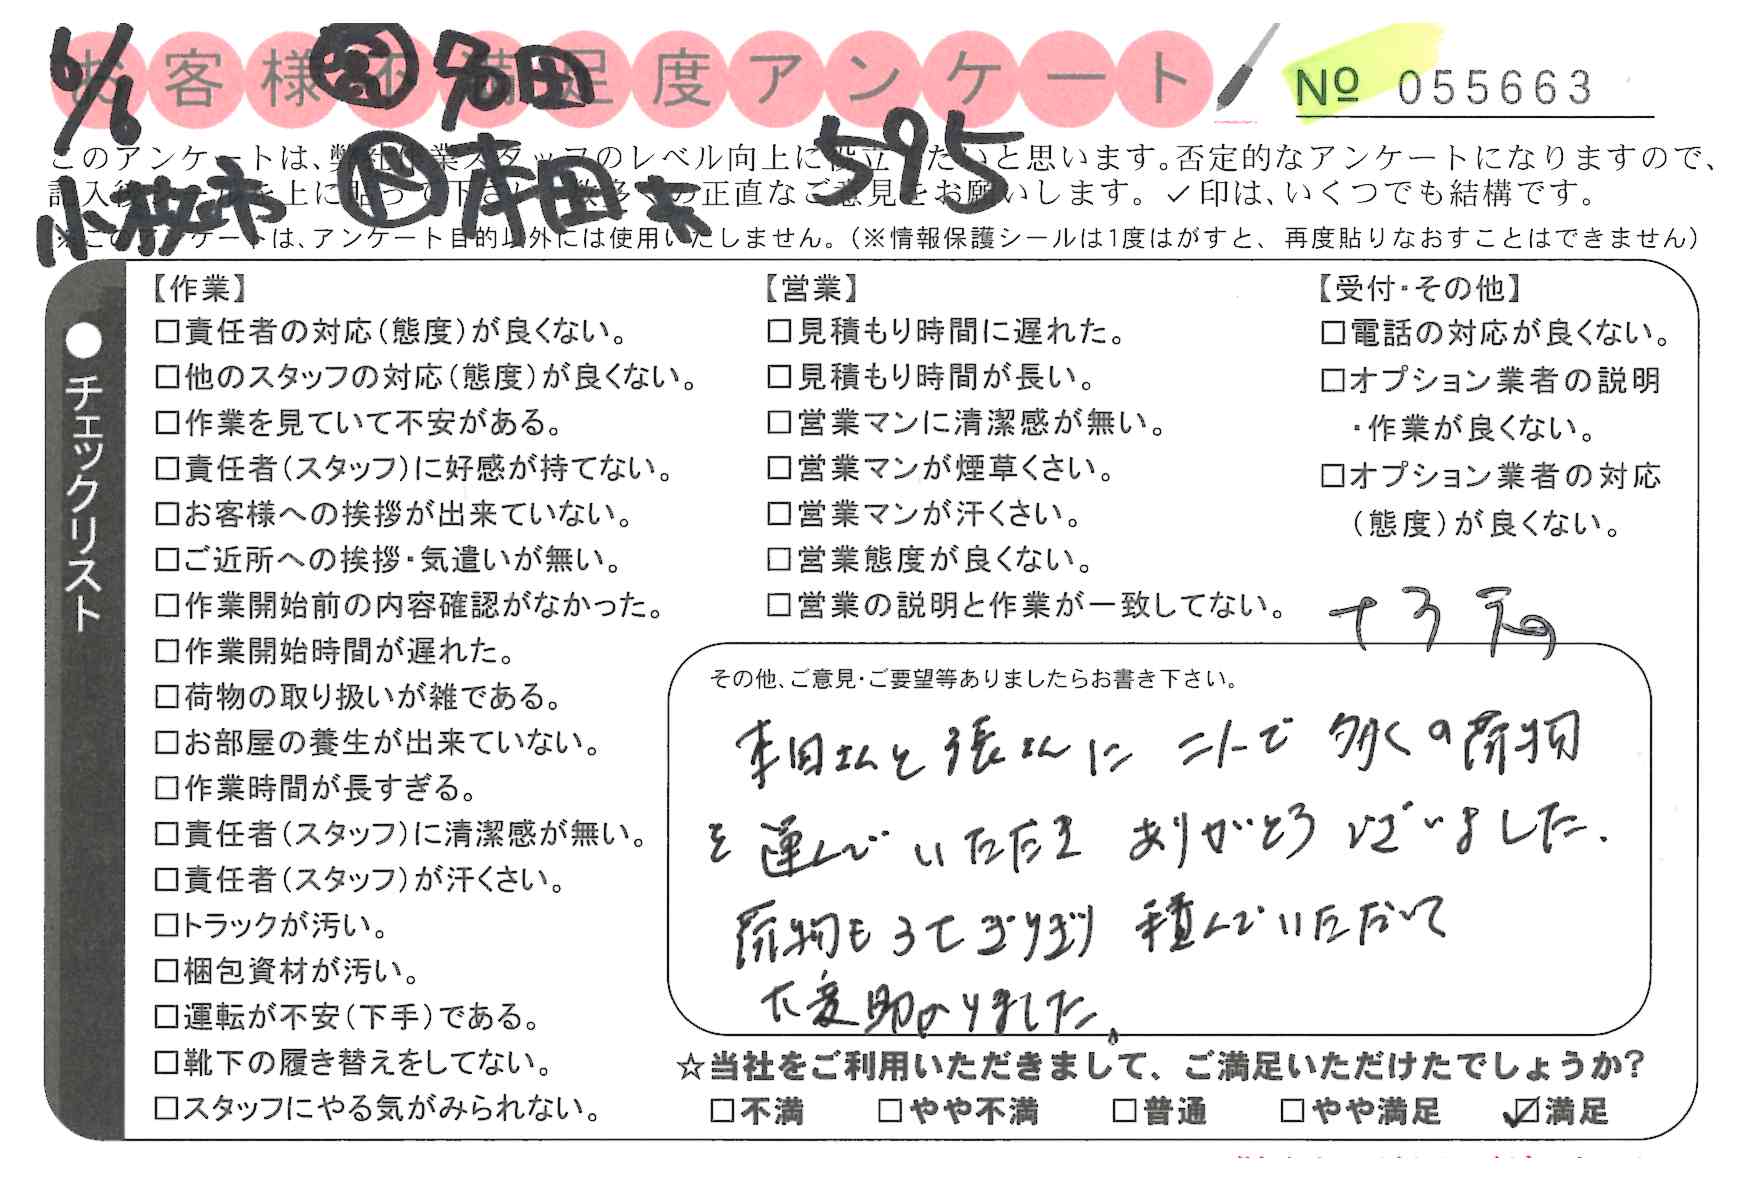 お客様不満足度アンケート
№ 055663
6/6
名田
本田
595
小牧市
このアンケートは、弊社作業スタッフのレベル向上に役立てたいと思います。否定的なアンケートになりますので、
記入後シールを上に貼って下さい。数多くの正直なご意見をお願いします。✓印は、いくつでも結構です。
※このアンケートは、アンケート目的以外には使用いたしません。(※情報保護シールは1度はがすと、再度貼りなおすことはできません)
●チェックリスト
【作業】
□責任者の対応(態度)が良くない。
□他のスタッフの対応(態度)が良くない。
□作業を見ていて不安がある。
□責任者(スタッフ)に好感が持てない。
□お客様への挨拶が出来ていない。
□ご近所への挨拶・気遣いが無い。
□作業開始前の内容確認がなかった。
□作業開始時間が遅れた。
□荷物の取り扱いが雑である。
□お部屋の養生が出来ていない。
□作業時間が長すぎる。
□責任者(スタッフ)に清潔感が無い。
□責任者(スタッフ)が汗くさい。
□トラックが汚い。
□梱包資材が汚い。
□運転が不安(下手)である。
□靴下の履き替えをしてない。
□スタッフにやる気がみられない。
【営業】
□見積もり時間に遅れた。
□見積もり時間が長い。
□営業マンに清潔感が無い。
□営業マンが煙草くさい。
□営業マンが汗くさい。
□営業態度が良くない。
□営業の説明と作業が一致してない。
【受付・その他】
□電話の対応が良くない。
□オプション業者の説明
・作業が良くない。
□オプション業者の対応
(態度)が良くない。
その他、ご意見・ご要望等ありましたらお書き下さい。
本田さんと張さんに 二人で 多くの荷物
を運んでいただき ありがとうございました。
荷物も ぎりぎり 積んでいただいて
大変助かりました。
☆当社をご利用いただきまして、ご満足いただけたでしょうか?
□不満 □やや不満 □普通 □やや満足 ☑満足